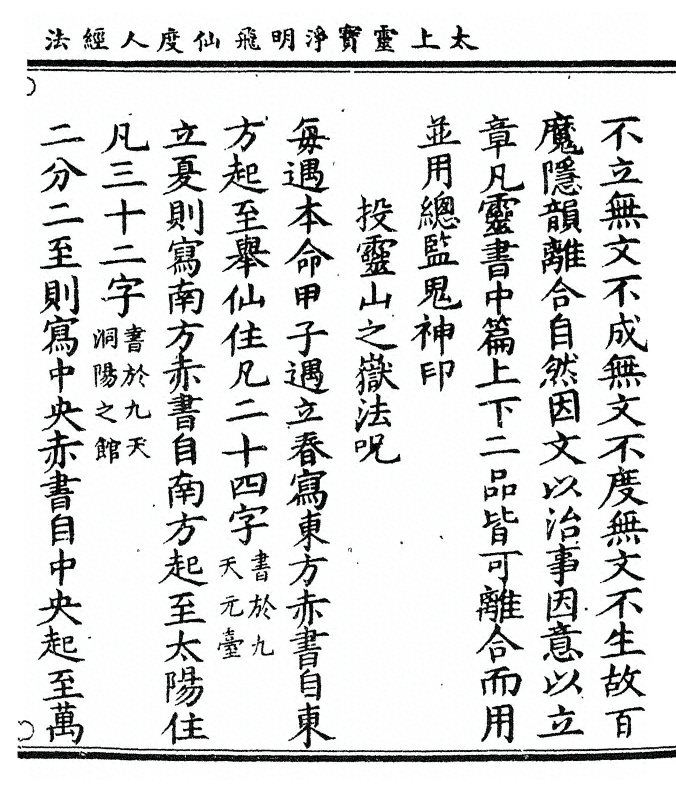 太上靈寶淨明飛仙度人經法
不立無文不成無文不度無文不生故百
魔隱韻離合自然因文以治事因意以立
章凡靈書中篇上下二品皆可離合而用
並用總監鬼神印
投靈山之嶽法呪
每遇本命甲子遇立春寫東方赤書自東
方起至舉仙住凡二十四字書於九天元臺
立夏則寫南方赤書自南方起至太陽住
凡三十二字書於九天洞陽之館
二分二至則寫中央赤書自中央起至萬